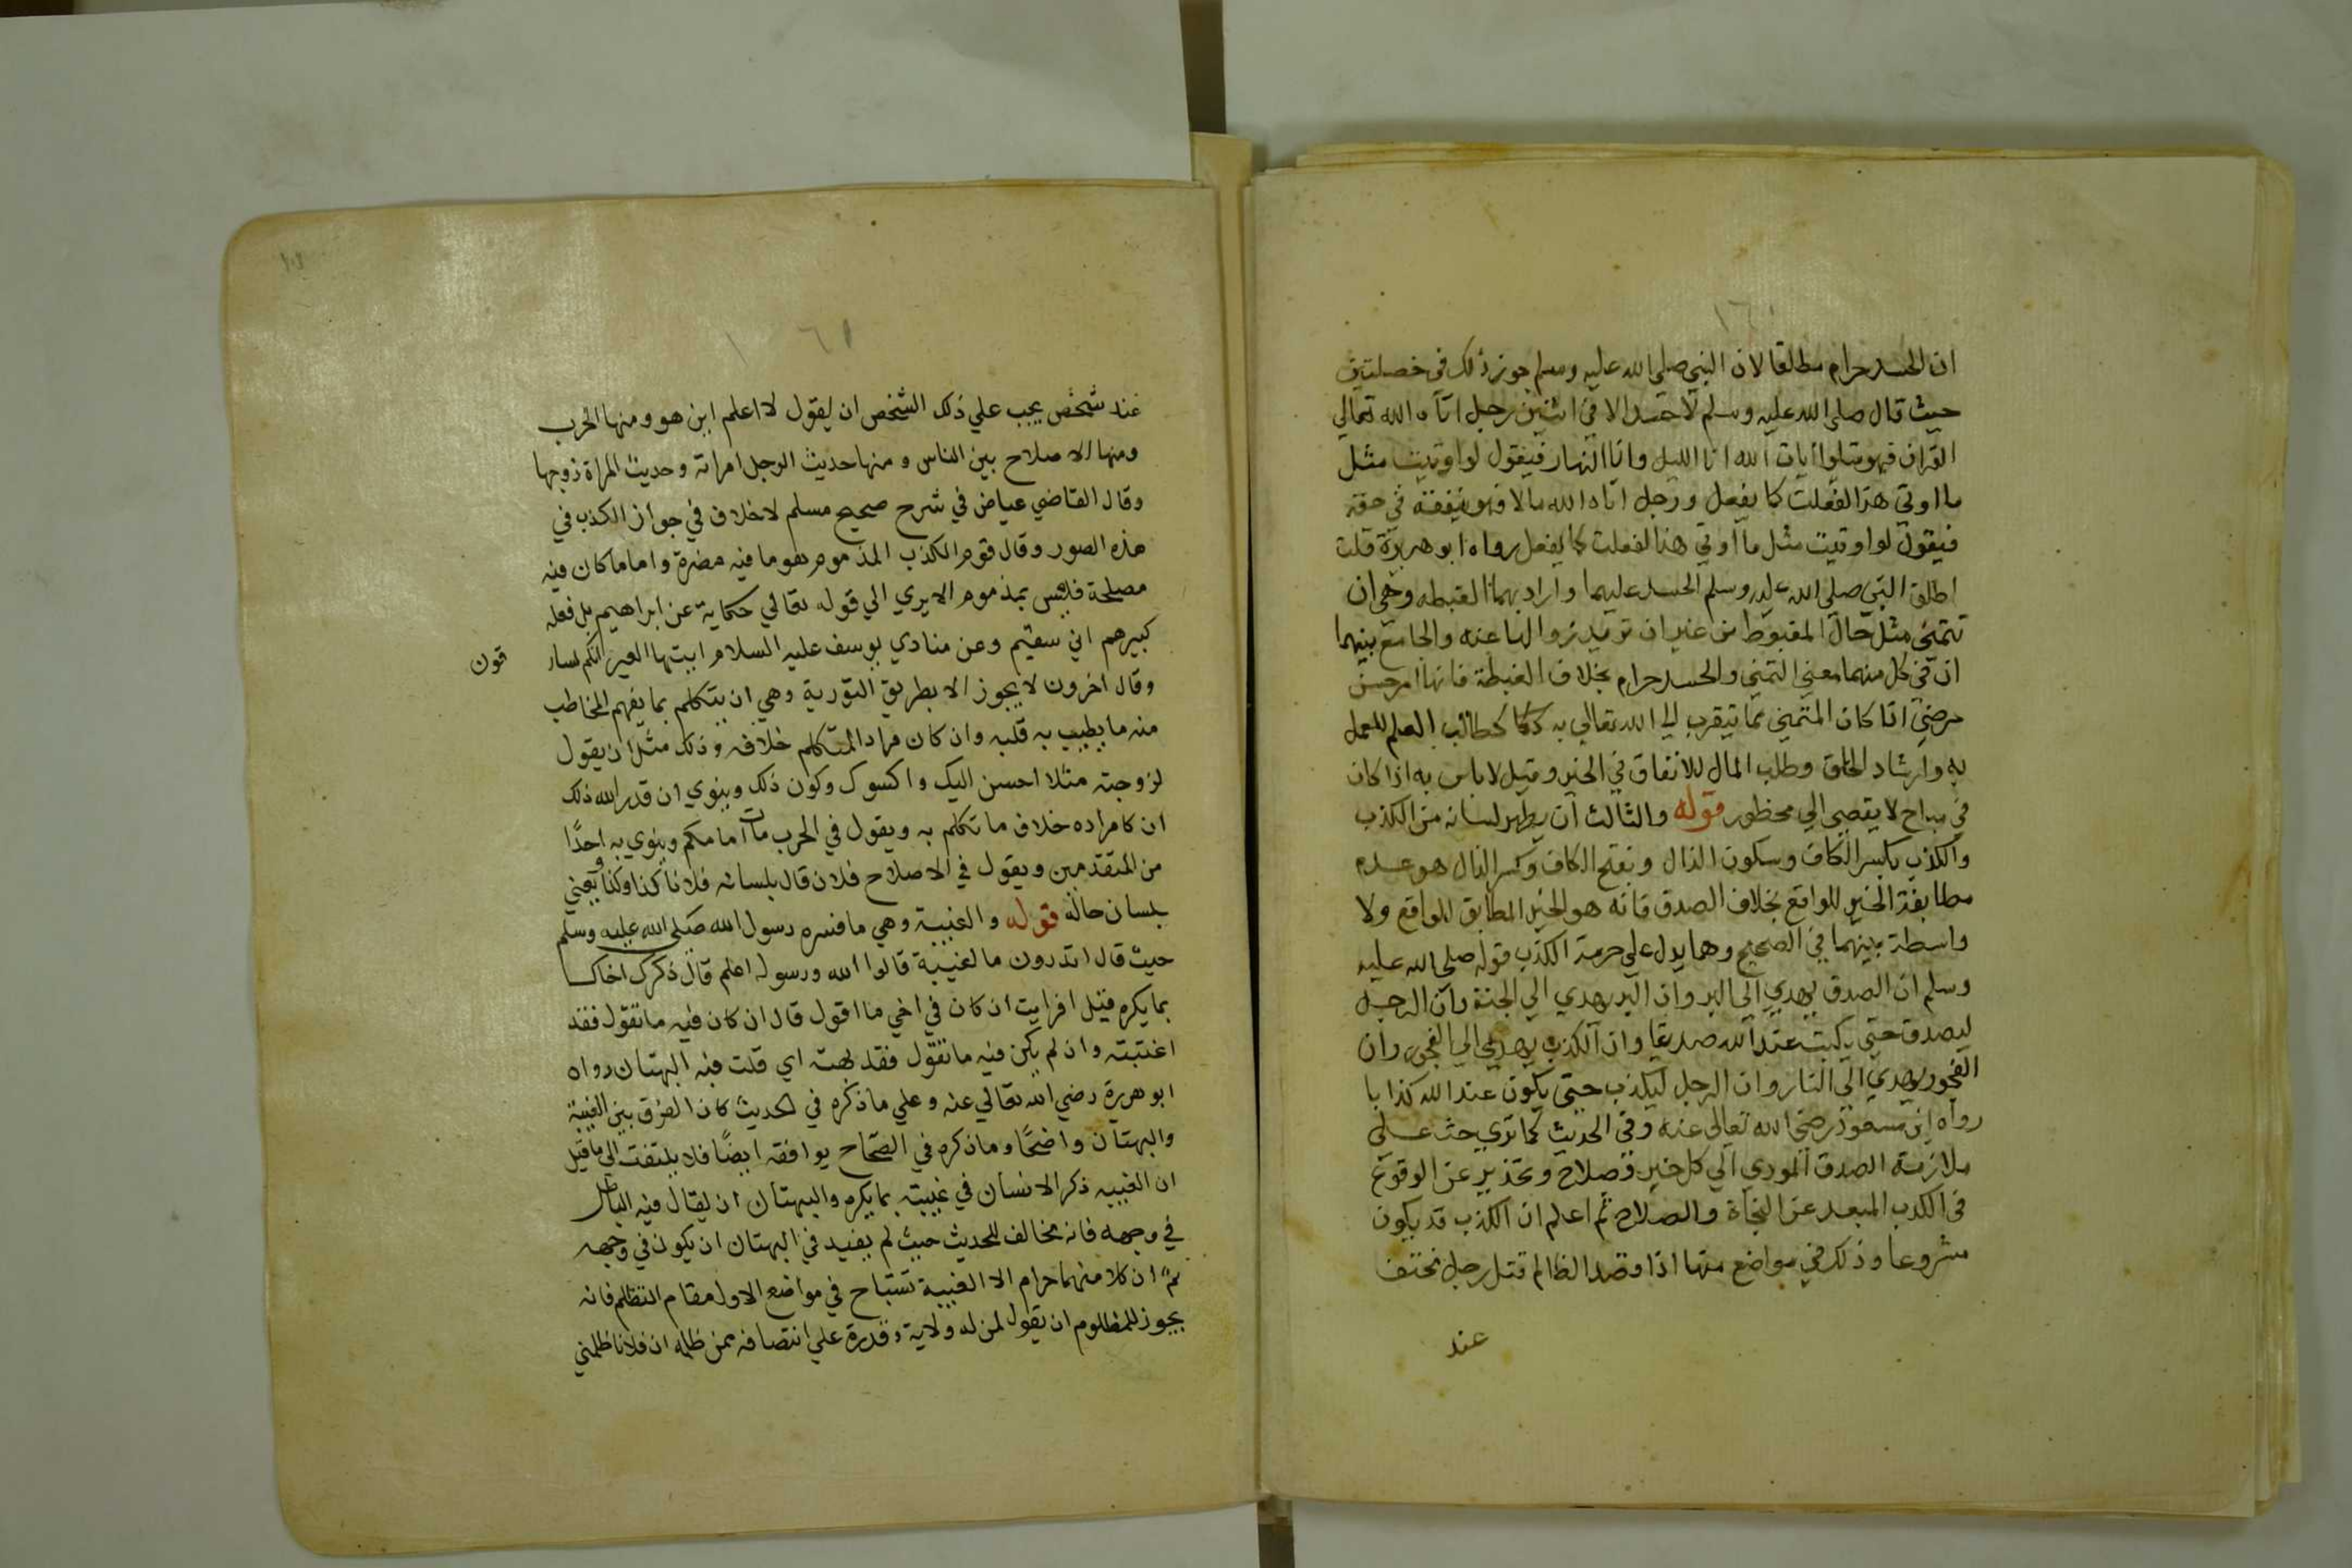 ١٦٠
ان الحسد حرام مطلقا لان النبي صلى الله عليه وسلم جوز ذلك في خصلتين
حيث قال صلى الله عليه وسلم لا حسد الا في اثنين رجل اتاه الله تعالي
القران فهو يتلوا ايات الله انا الليل وانا النهار فيقول لو اوتيت مثل
ما اوتي هذا لفعلت كما يفعل ورجل اتاه الله مالا فهو ينفقه في حقه
فيقول لو اوتيت مثل ما اوتي هذا لفعلت كما يفعل رواه ابو هريرة قلت
اطلق النبي صلي الله عليه وسلم الحسد عليهما واراد بهما الغبطه وهي ان
تتمنى مثل حال المغبوط من غير ان تريد زوالها عنه والجامع بينهما
ان في كل منهما معني التمني والحسد حرام بخلاف الغبطة فانها امر حسن
مرضي اذا كان المتمني مما يتقرب الي الله تعالي به كطالب العلم للعمل
به وارشاد الخلق وطلب المال للانفاق في الخير وقيل لا باس به اذا كان
في مباح لا يقضي الي محظور قوله والثالث ان يطهر لسانه من الكذب
والكذب بكسر الكاف وسكون الذال وبفتح الكاف وكسر الذال هو عدم
مطابقة الخبر للواقع بخلاف الصدق فانه هو الخبر المطابق للواقع ولا
واسطة بينهما في الصحيح ومما يدل علي حرمة الكذب قوله صلي الله عليه
وسلم ان الصدق يهدي الي البر وان البر يهدي الي الجنة وان الرجل
ليصدق حتي يكتب عند الله صديقا وان الكذب يهدي الي الفجور وان
الفجور يهدي الي النار وان الرجل ليكذب حتي يكون عند الله كذابا
رواه ابن مسعود رضي الله تعالى عنه وفي الحديث كما تري حث علي
ملازمة الصدق المودي الي كل خير وصلاح وتحذير عن الوقوع
في الكذب المبعد عن النجاة والصلاح ثم اعلم ان الكذب قد يكون
مشروعا وذلك في مواضع منها اذا قصد الظالم قتل رجل مختف
عند
١٦١
عند شخص يجب علي ذلك الشخص ان يقول لا اعلم اين هو ومنها الحرب
ومنها الاصلاح بين الناس ومنها حديث الرجل امراته وحديث المراة زوجها
وقال القاضي عياض في شرح صحيح مسلم لا خلاف في جواز الكذب في
هذه الصور وقال قوم الكذب المذموم هو ما فيه مضرة واما ما كان فيه
مصلحة فليس بمذموم الا يري الي قوله تعالي حكاية عن ابراهيم بل فعله
كبيرهم اني سقيم وعن منادي يوسف عليه السلام ايتها العير انكم لسار
قون
وقال اخرون لا يجوز الا بطريق التورية وهي ان يتكلم بما يفهم المخاطب
منه ما يطيب به قلبه وان كان مراد المتكلم خلافه وذلك مثل ان يقول
لزوجته مثلا احسن اليك واكسوك وكون ذلك وينوي ان قدر الله ذلك
ان كا مراده خلاف ما تكلم به ويقول في الحرب مات امامكم وينوي به احدًا
من المتقدمين ويقول في الاصلاح فلان قال بلسانه فلانا كذا وكذا ويعني
بلسان حاله قوله والغيبة وهي ما فسره رسول الله صلى الله عليه وسلم
حيث قال اتدرون ما لغيبة قالوا الله ورسوله اعلم قال ذكرك اخاك
بما يكره فقيل افرايت ان كان في اخي ما اقول قال ان كان فيه ما تقول فقد
اغتبته وان لم يكن فيه ما تقول فقد بهته اي قلت فيه البهتان رواه
ابو هريرة رضي الله تعالي عنه وعلي ما ذكره في الحديث كان الفرق بين الغيبة
والبهتان واضحًا وما ذكره في الصحاح يوافقه ايضًا فلا يلتفت الي ما قيل
ان الغيبيه ذكر الانسان في غيبته بما يكره والبهتان ان يقال فيه الباطل
في وجهه فانه مخالف للحديث حيث لم يقيد في البهتان ان يكون في وجهه
ثم ان كلا منهما حرام الا الغيبة تستباح في مواضع الاول مقام التظلم فانه
يجوز للمظلوم ان يقول لمن له ولاية وقدرة علي انتصافه ممن ظلمه ان فلانا ظلمني